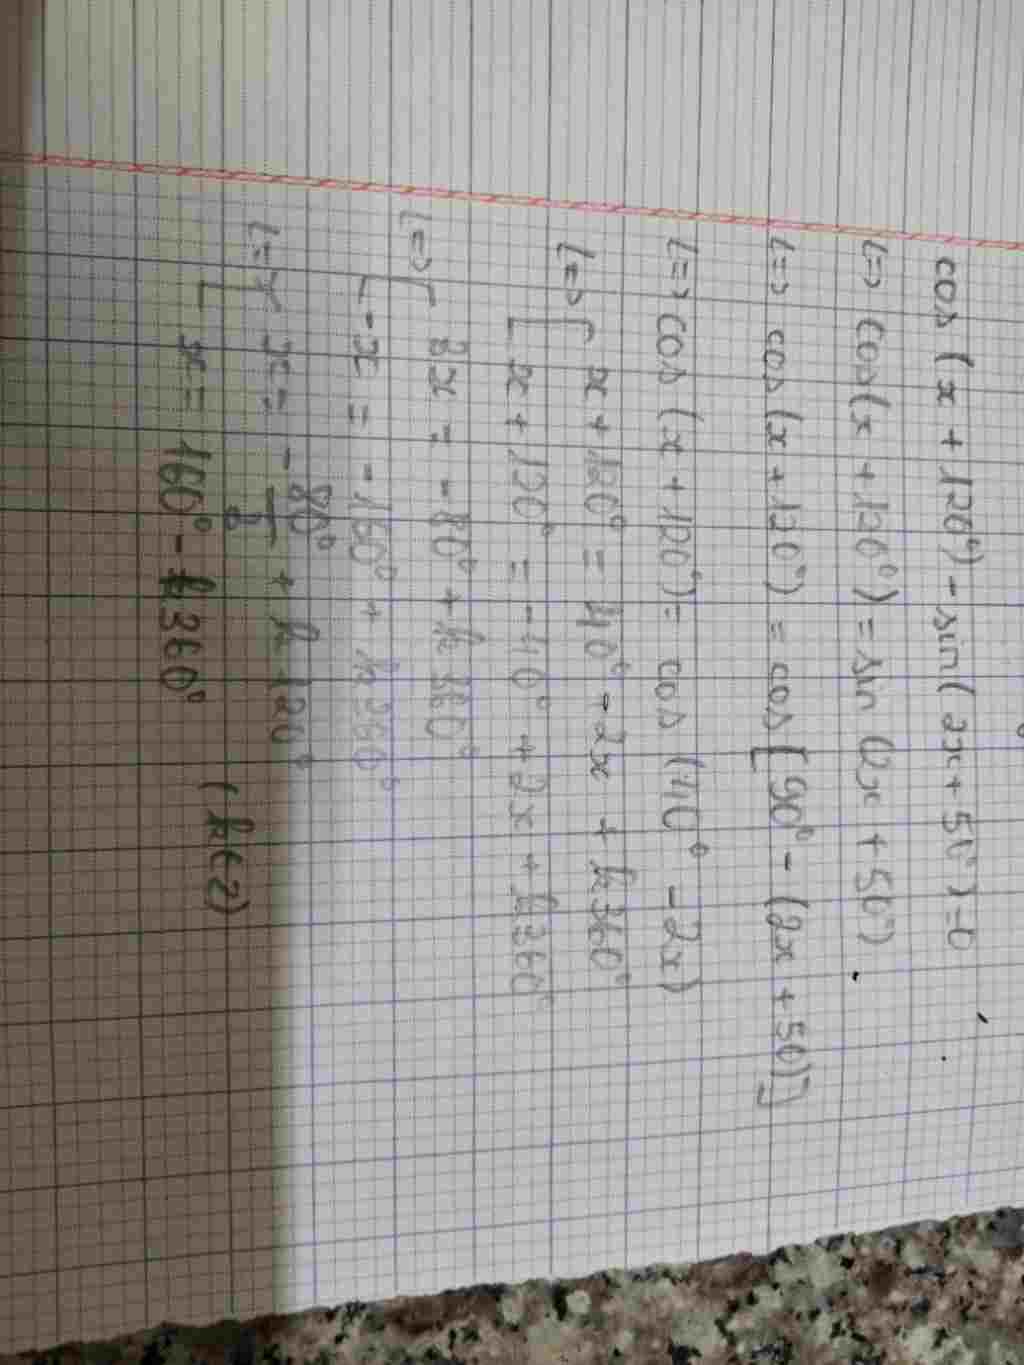 cos (x + 120°) - sin( 2x + 50°) = 0
<=> cos(x + 120°) = sin (2x + 50°)
<=> cos (x + 120°) = cos [90° - (2x + 50)]
<=> cos (x + 120°) = cos (40° - 2x)
<=> [ x + 120° = 40° - 2x + k360°
[ x + 120° = -40° + 2x + k360°
<=> [ 3x = -80° + k360°
[ -x = -160° + k360°
<=> [ x = - 80°/3 + k 120°
[ x = 160° - k360° (k∈Z)